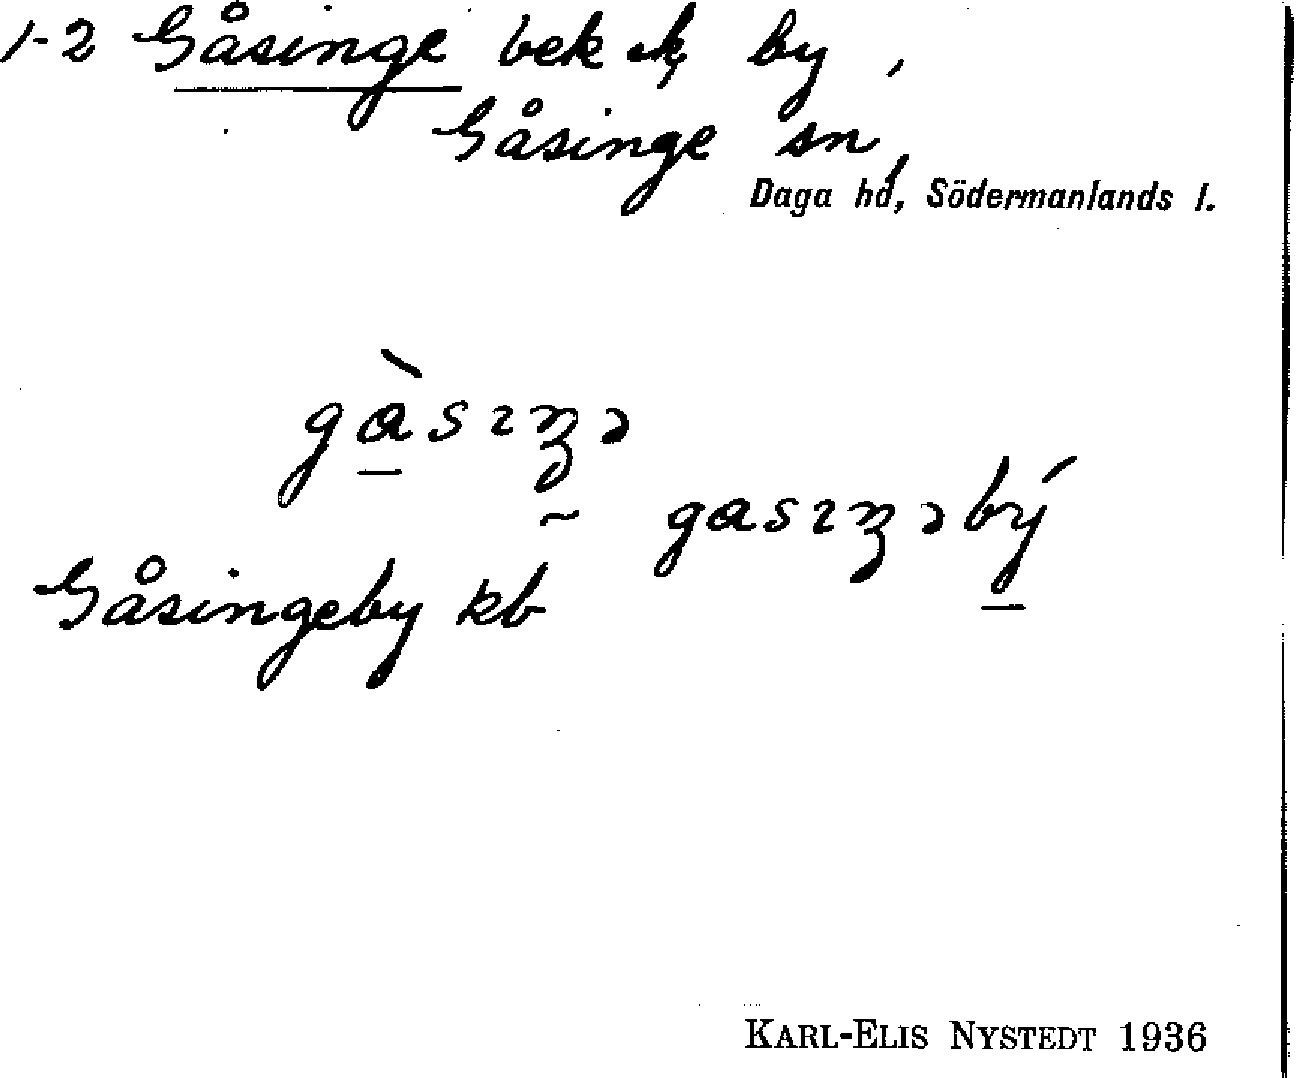 1-2 Gåsinge bek ek by,
Gåsinge sn,
Daga hd, Södermanlands l.
gàsıŋə
~ gasıŋəbý
Gåsingeby kb
KARL-ELIS NYSTEDT 1936